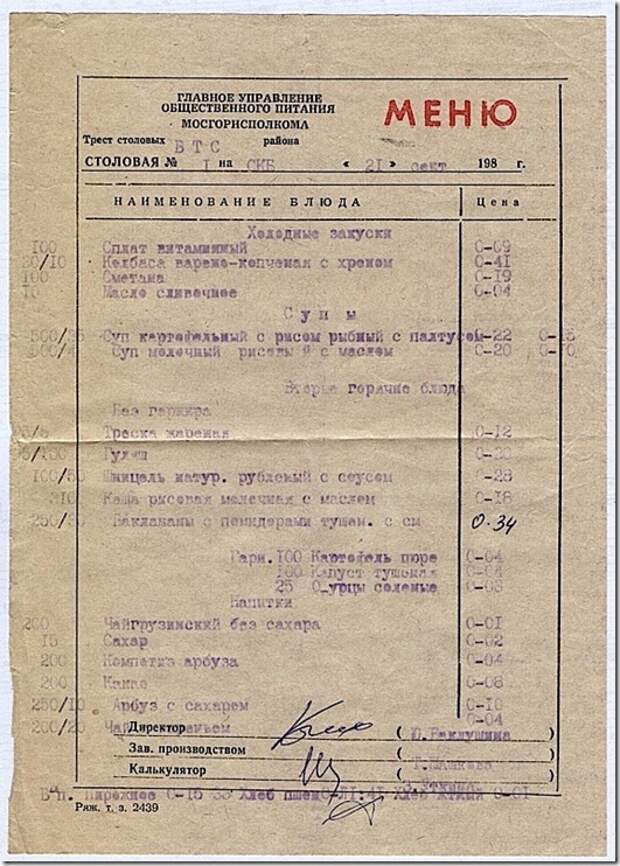 ГЛАВНОЕ УПРАВЛЕНИЕ
ОБЩЕСТВЕННОГО ПИТАНИЯ
МОСГОРИСПОЛКОМА
МЕНЮ
Трест столовых БТС района
СТОЛОВАЯ № I на СКБ « 21 » сент 198 г.
НАИМЕНОВАНИЕ БЛЮДА Цена
Холодные закуски
100 Салат витаминный 0-09
/10 Колбаса варено-копченая с хреном 0-41
100 Сметана 0-19
10 Масло сливочное 0-04
Супы
500/ Суп картофельный с рисом рыбный с палтусом 0-22
500/ Суп молочный рисовый с маслом 0-20 0-10
Вторые горячие блюда
Без гарнира
Треска жареная 0-12
/100 Гуляш
100/50 Шницель натур. рубленый с соусом 0-28
210 Каша рисовая молочная с маслом 0-18
250/ Баклажаны с помидорами тушен. с см 0-34
Гарн. 100 Картофель пюре 0-04
100 Капуст тушеная 0-04
25 О урцы соленые 0-03
Напитки
200 Чайгрузинский без сахара 0-01
15 Сахар 0-02
200 Компотиз арбуза 0-04
200 Какао 0-08
250/10 Арбуз с сахаром 0-10
200/20 Чай 0-04
Директор ( )
Зав. производством ( )
Калькулятор ( )
Б"п. Пирожное 0-15 33 Хлеб пшен
Ряж. т. з. 2439